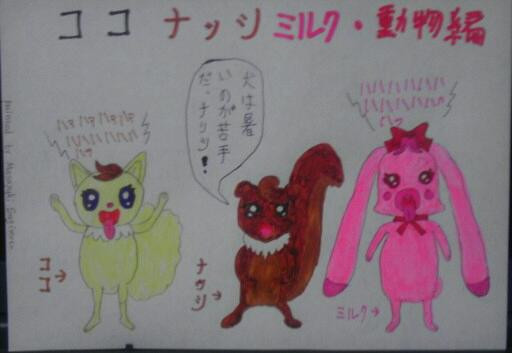 ココ ナッツ ミルク・動物編
ハァ ハァ ハァ ハァ
犬は暑
いのが苦手
だ、ナッツ!
ココ→
ナッツ→
ミルク→